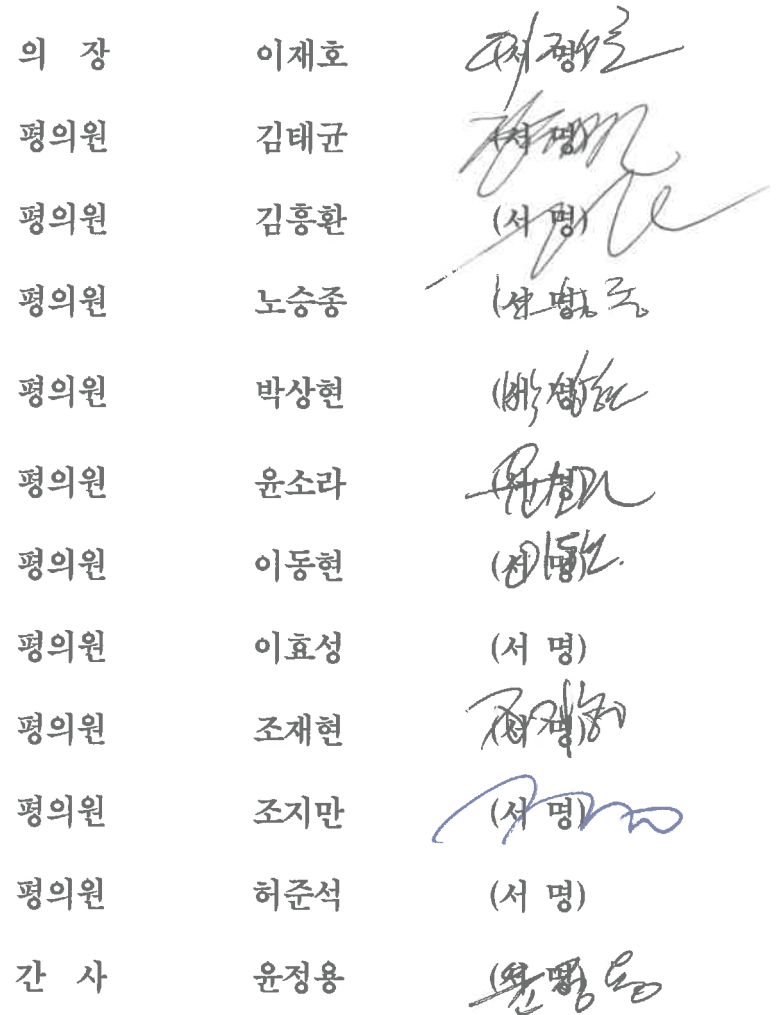 의 장 이재호 (서 명)
평의원 김태균 (서 명)
평의원 김흥환 (서 명)
평의원 노승종 (서 명)
평의원 박상현 (서 명)
평의원 윤소라 (서 명)
평의원 이동현 (서 명)
평의원 이효성 (서 명)
평의원 조재현 (서 명)
평의원 조지만 (서 명)
평의원 허준석 (서 명)
간 사 윤정용 (서 명)